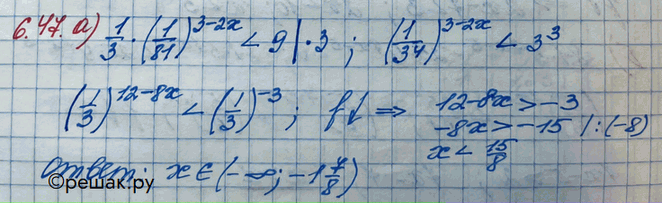 6.47. а) 1/3 · (1/81)^(3-2x) < 9 | · 3 ; (1/3⁴)^(3-2x) < 3³
(1/3)^(12-8x) < (1/3)^(-3) ; f↓ ⇒ 12-8x > -3
-8x > -15 | : (-8)
x < 15/8
Ответ: x ∈ (-∞; -1 7/8)
©решак.ру